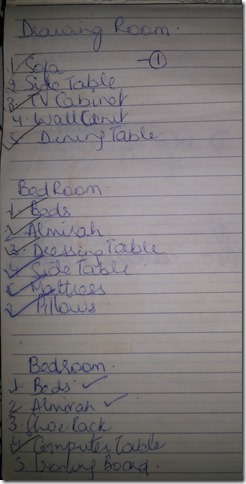 Drawing Room.
①
1. Sofa
2. Side Table
3. TV Cabinet
4. Wall Cabinet
5. Dining Table
BedRoom
1. Beds
2. Almirah
3. Dressing Table
4. Side Table
5. Mattress
6. Pillows
Bedroom.
1. Beds ✓
2. Almirah ✓
3. Shoe Rack
4. Computer Table
5. Ironing Board.